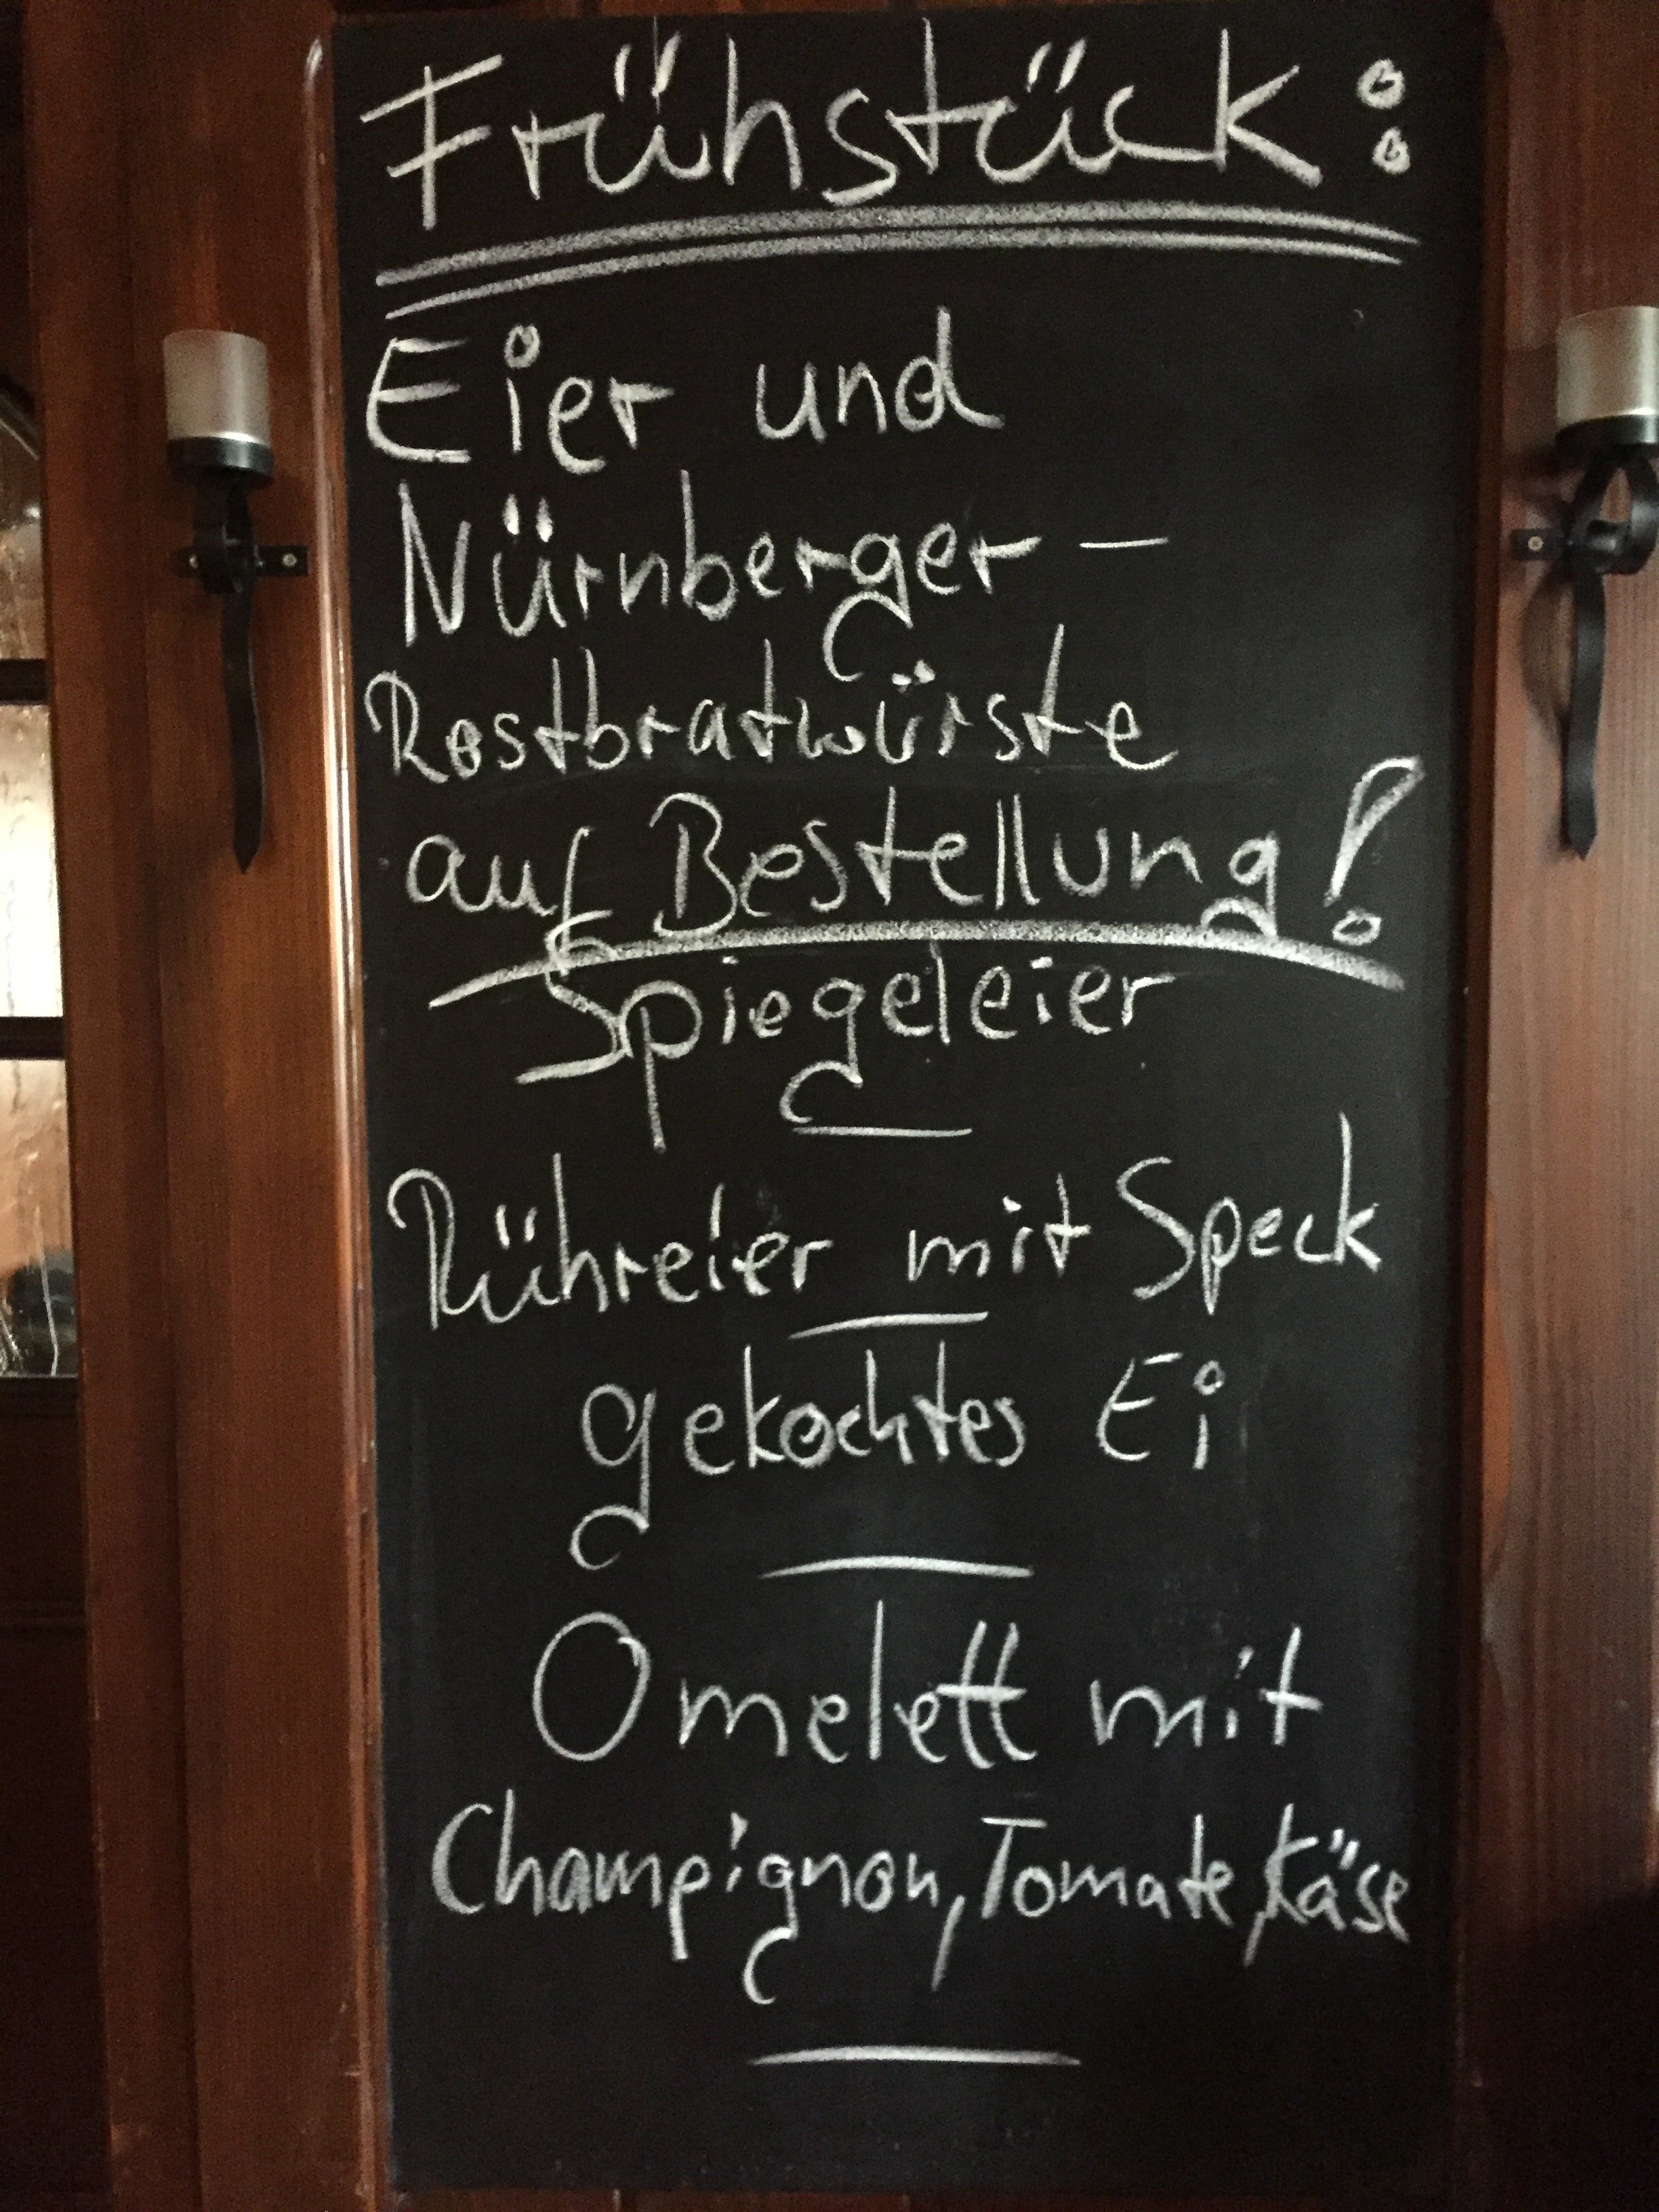 Frühstück:
Eier und
Nürnberger-
Rostbratwürste
auf Bestellung!
Spiegeleier
Rühreier mit Speck
gekochtes Ei
Omelett mit
Champignon, Tomate, Käse